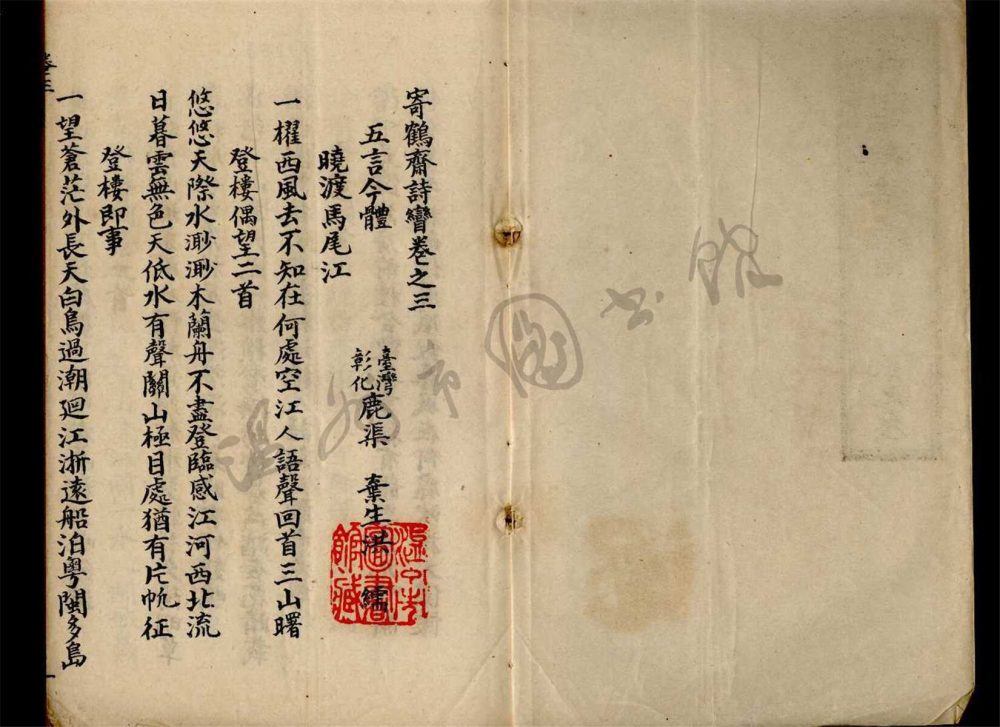 寄鶴齋詩矕卷之三
五言今體
臺灣彰化鹿渠 棄生洪 繻
曉渡馬尾江
一櫂西風去不知在何處空江人語聲回首三山曙
登樓偶望二首
悠悠天際水渺渺木蘭舟不盡登臨感江河西北流
日暮雲無色天低水有聲關山極目處猶有片帆征
登樓即事
一望蒼茫外長天白鳥過潮廻江浙遠船泊粵閩多島
卷三
一
溫州市圖書館
溫州市圖書館藏